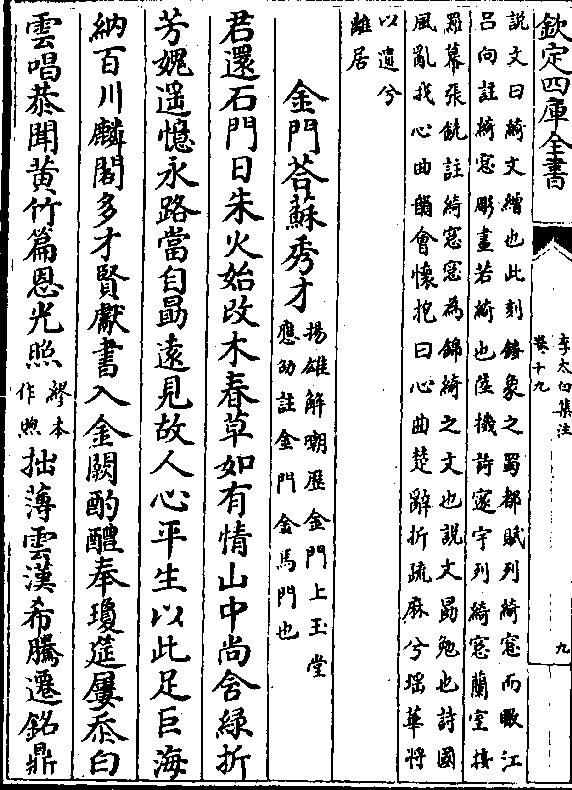 欽定四庫全書
李太白集注
卷十九
九
說文曰綺文繒也此刻鏤象之蜀都賦列綺窓而瞰江
呂向註綺窓彫畫若綺也陸機詩邃宇列綺窓蘭室接
羅幕張銑註綺窓窓為錦綺之文也說文勗勉也詩國
風亂我心曲鄭㑹懷抱曰心曲楚辭折疏麻兮瑶華將
以遺兮
離居
金門荅蘇秀才
揚雄解嘲歴金門上玉堂
應劭註金門金馬門也
君還石門日朱火始改木春草如有情山中尚含緑折
芳媿遥憶永路當自勗逺見故人心平生以此足巨海
納百川麟閣多才賢獻書入金闕酌醴奉瓊筵屢忝白
雲唱恭聞黄竹篇恩光照
繆本
作煦
拙薄雲漢希騰遷銘鼎